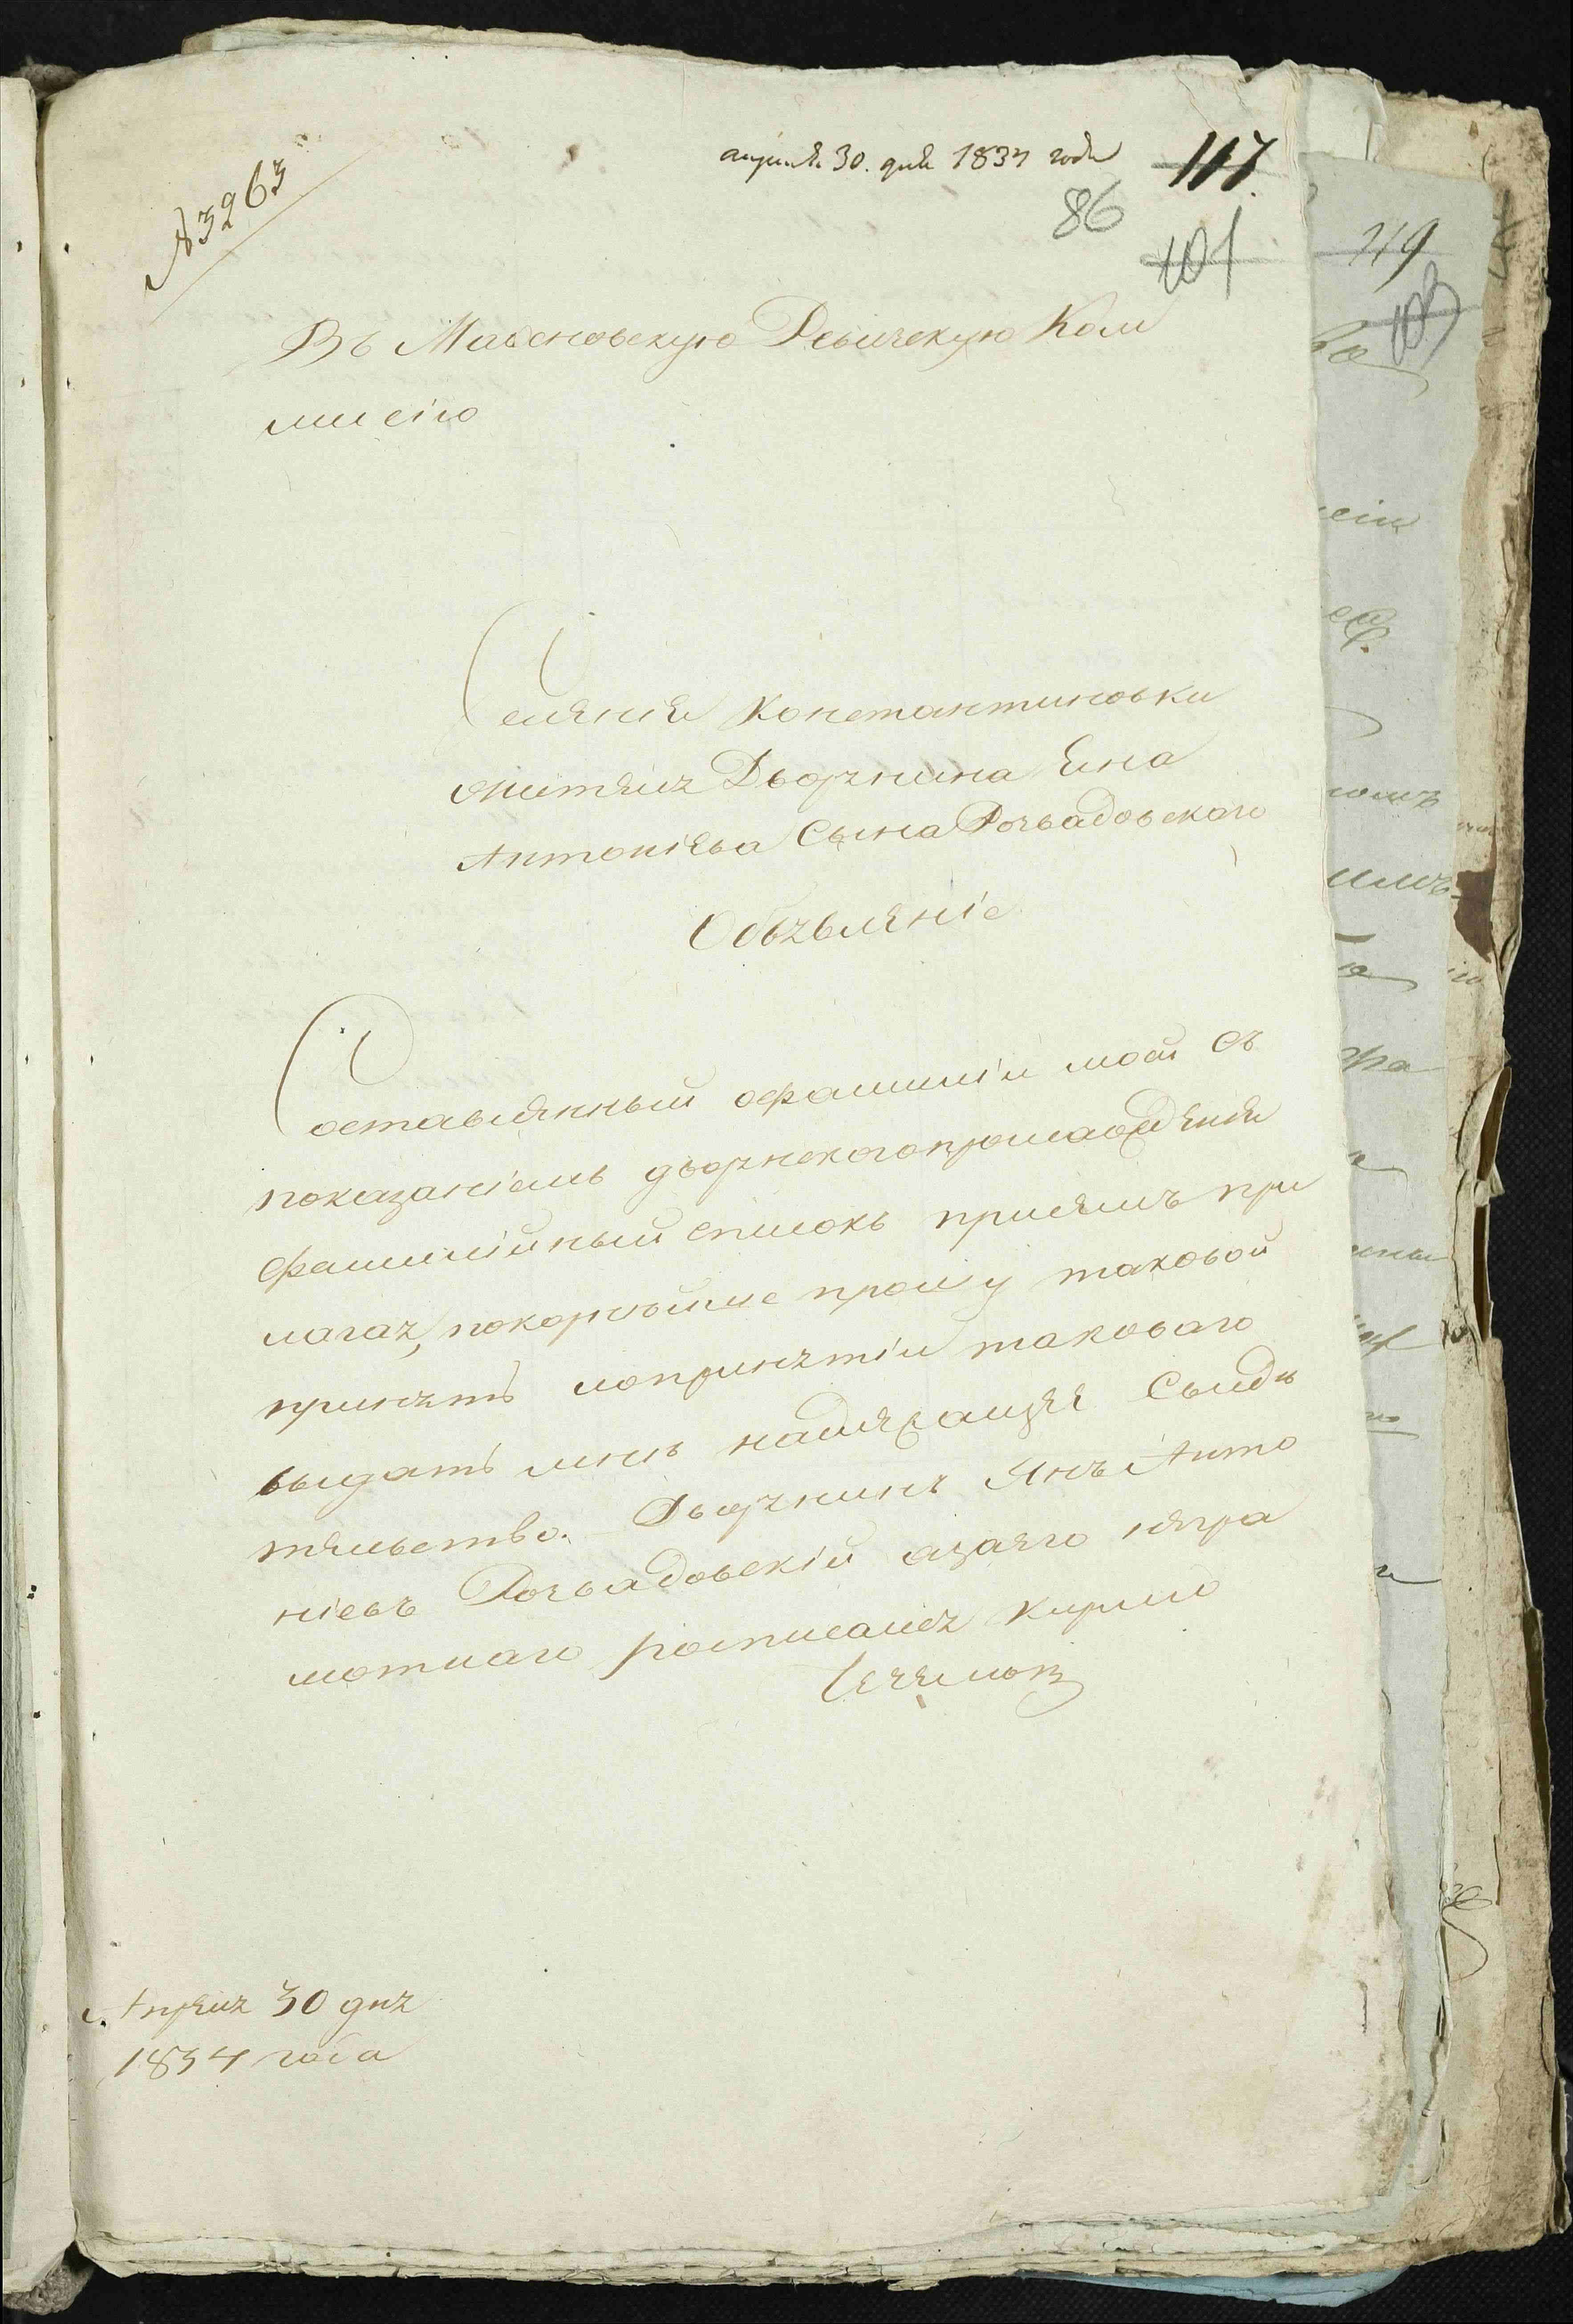 апреля 30. дня 1834 года 117.
86
101
№ 3263
Въ Ревизскую Ком
мисію
Селенія Константиновки
жителя Дворянина Яна
Антоніева Сына Рочвадовского
Объявленіе
Составленный офамиліи моей съ
показаніемъ дворянскогопроизхожденія
фамилійный списокъ присемъ при
лагая, покорнейше прошу таковой
принять попринятіи таковаго
выдать мнѣ надлежащее Свиде
тельство. Дворянинъ Янъ Анто
ніевъ Рочвадовскій азаего негра
мотнаго росписался Кирило
Апреля 30 дня
1834 года
119
103